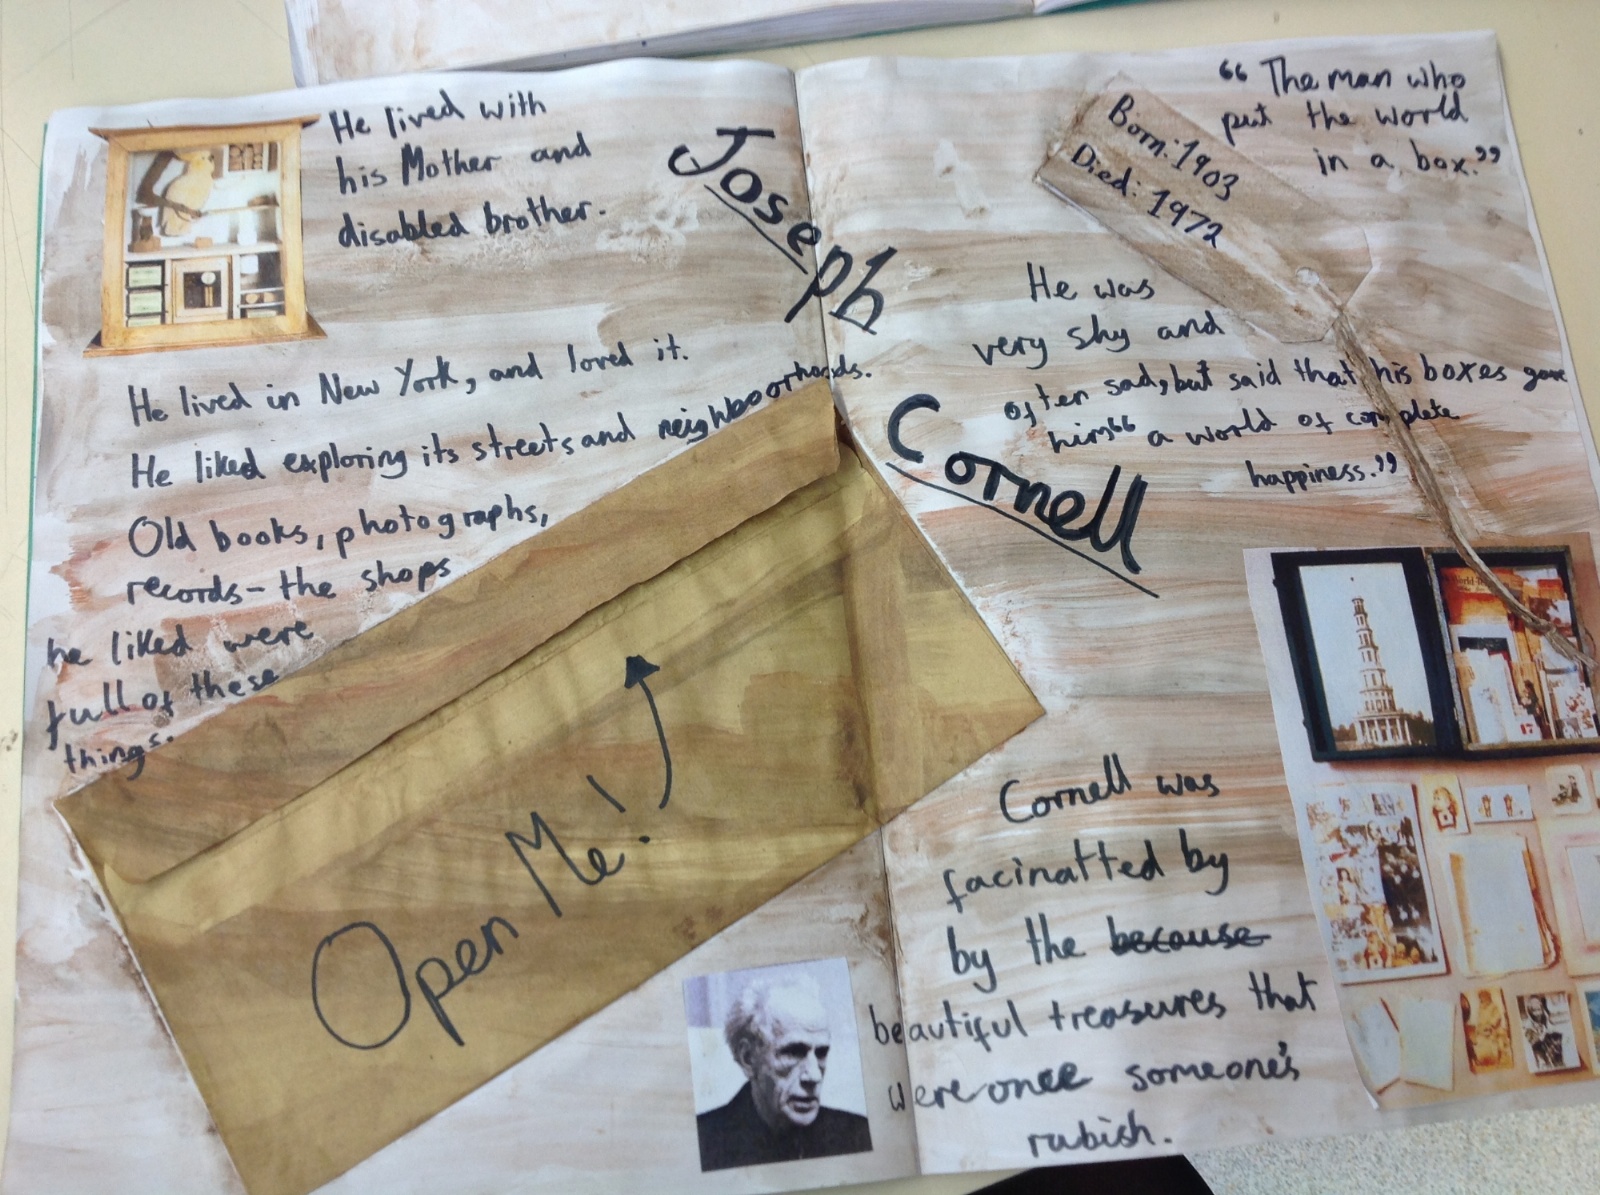 He lived with
his Mother and
disabled brother.
Joseph
Cornell
He lived in New York, and loved it.
He liked exploring its streets and neighboorhoods.
Old books, photographs,
records- the shops
he liked were
full of these
things.
Open Me!
"The man who
put the world
in a box."
Born: 1903
Died: 1972
He was
very shy and
often sad, but said that his boxes gave
him "a world of complete
happiness."
Cornell was
facinatted by
by the because
beautiful treasures that
were once someone's
rubish.